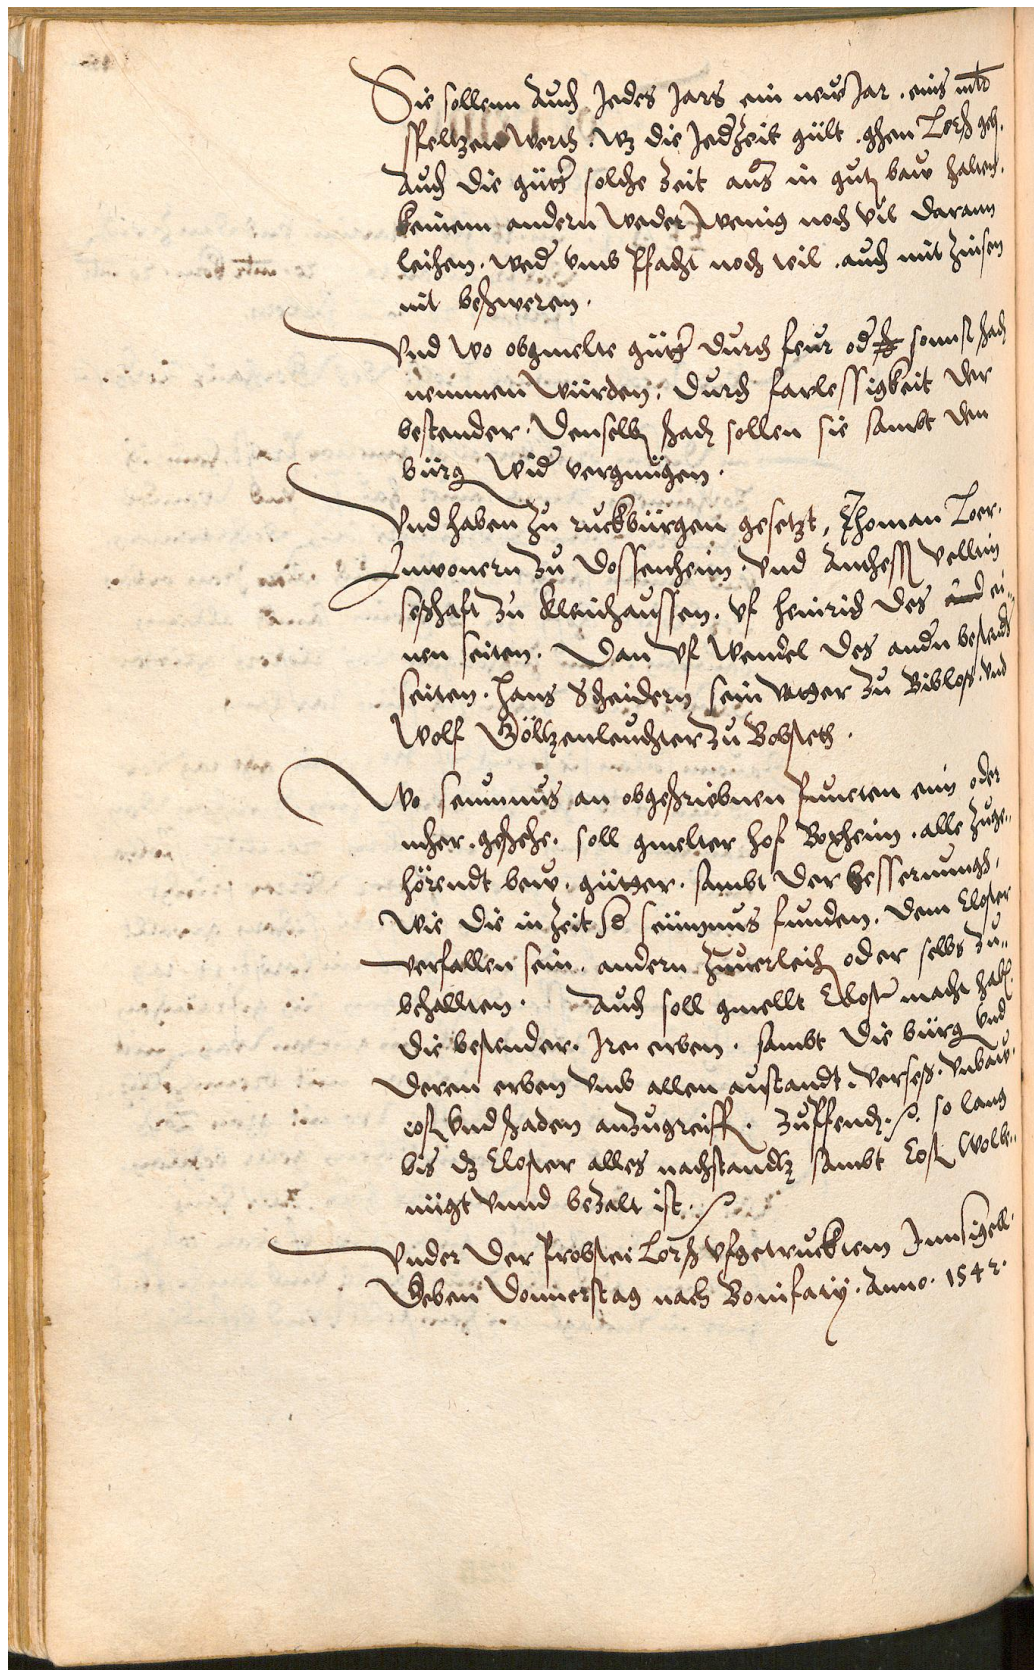 Sie sollenn Auch Jedes Jars ein new Jar . eins mltr
speltzen Werth . wz die Jederzeit gült . ghen Lorsch geb.
Auch die gütter solche zeit aus in gutem baw halten.
keinem andern Weder Wenig noch vil darann
leihen . wed vmb Pfacht noch teil . auch mit Zinsen
nit beschweren .
Vnd wo obgmelte gütter durch feur oder sonnst schaden
nemmen würden . durch farlessigkeit der
bestender . denselben schaden sollen sie sambt den
bürgen wider vergnügen .
Vnd haben zu ruckbürgen gesetzt , Thoman Loer .
Inwonern zu Dossenheim . vnd Anthess Velltin
seßhaft zu kleinhaussen . vf heinrich des ei-
nen seiten . Dan vf Wendel des andern bestenders
seiten . Hans Schneidern sein vatter zu Biblos . vnd
Wolf Göltzenleuchter zu Bobstett .
Wo seumnus an obgeschriebnen Puncten eim oder
mher . geschehe . soll gmelter hof Boxheim . alle zuge-
hörendt bew . gütter . sambt der besserungh .
wie die in zeit der seümnus funden . dem Closter
verfallen sein . andern zuuerleihen oder selbs zu-
behallten . Auch soll gmellt Closter macht haben
die bestender . Ire erben . sambt die bürgen vnd
deren erben vmb allen austandt . verseß . vnbaw .
cost vnd schaden anzugreiffen . zu Pfenden . so lang
bis dz Closter alles nachstandts sambt Cost Wolbe-
nügt vnnd bezalt ist .
Vnder der Probstei Lorsch vfgetrucktem Innsigell .
Geben Donnerstag nach Bonifacij . Anno . 1542 .